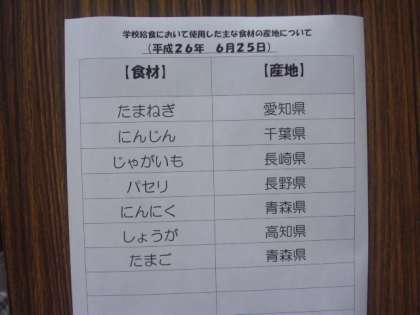 学校給食において使用した主な食材の産地について
（平成２６年　６月２５日）
【食材】　【産地】
たまねぎ　愛知県
にんじん　千葉県
じゃがいも　長崎県
パセリ　長野県
にんにく　青森県
しょうが　高知県
たまご　青森県